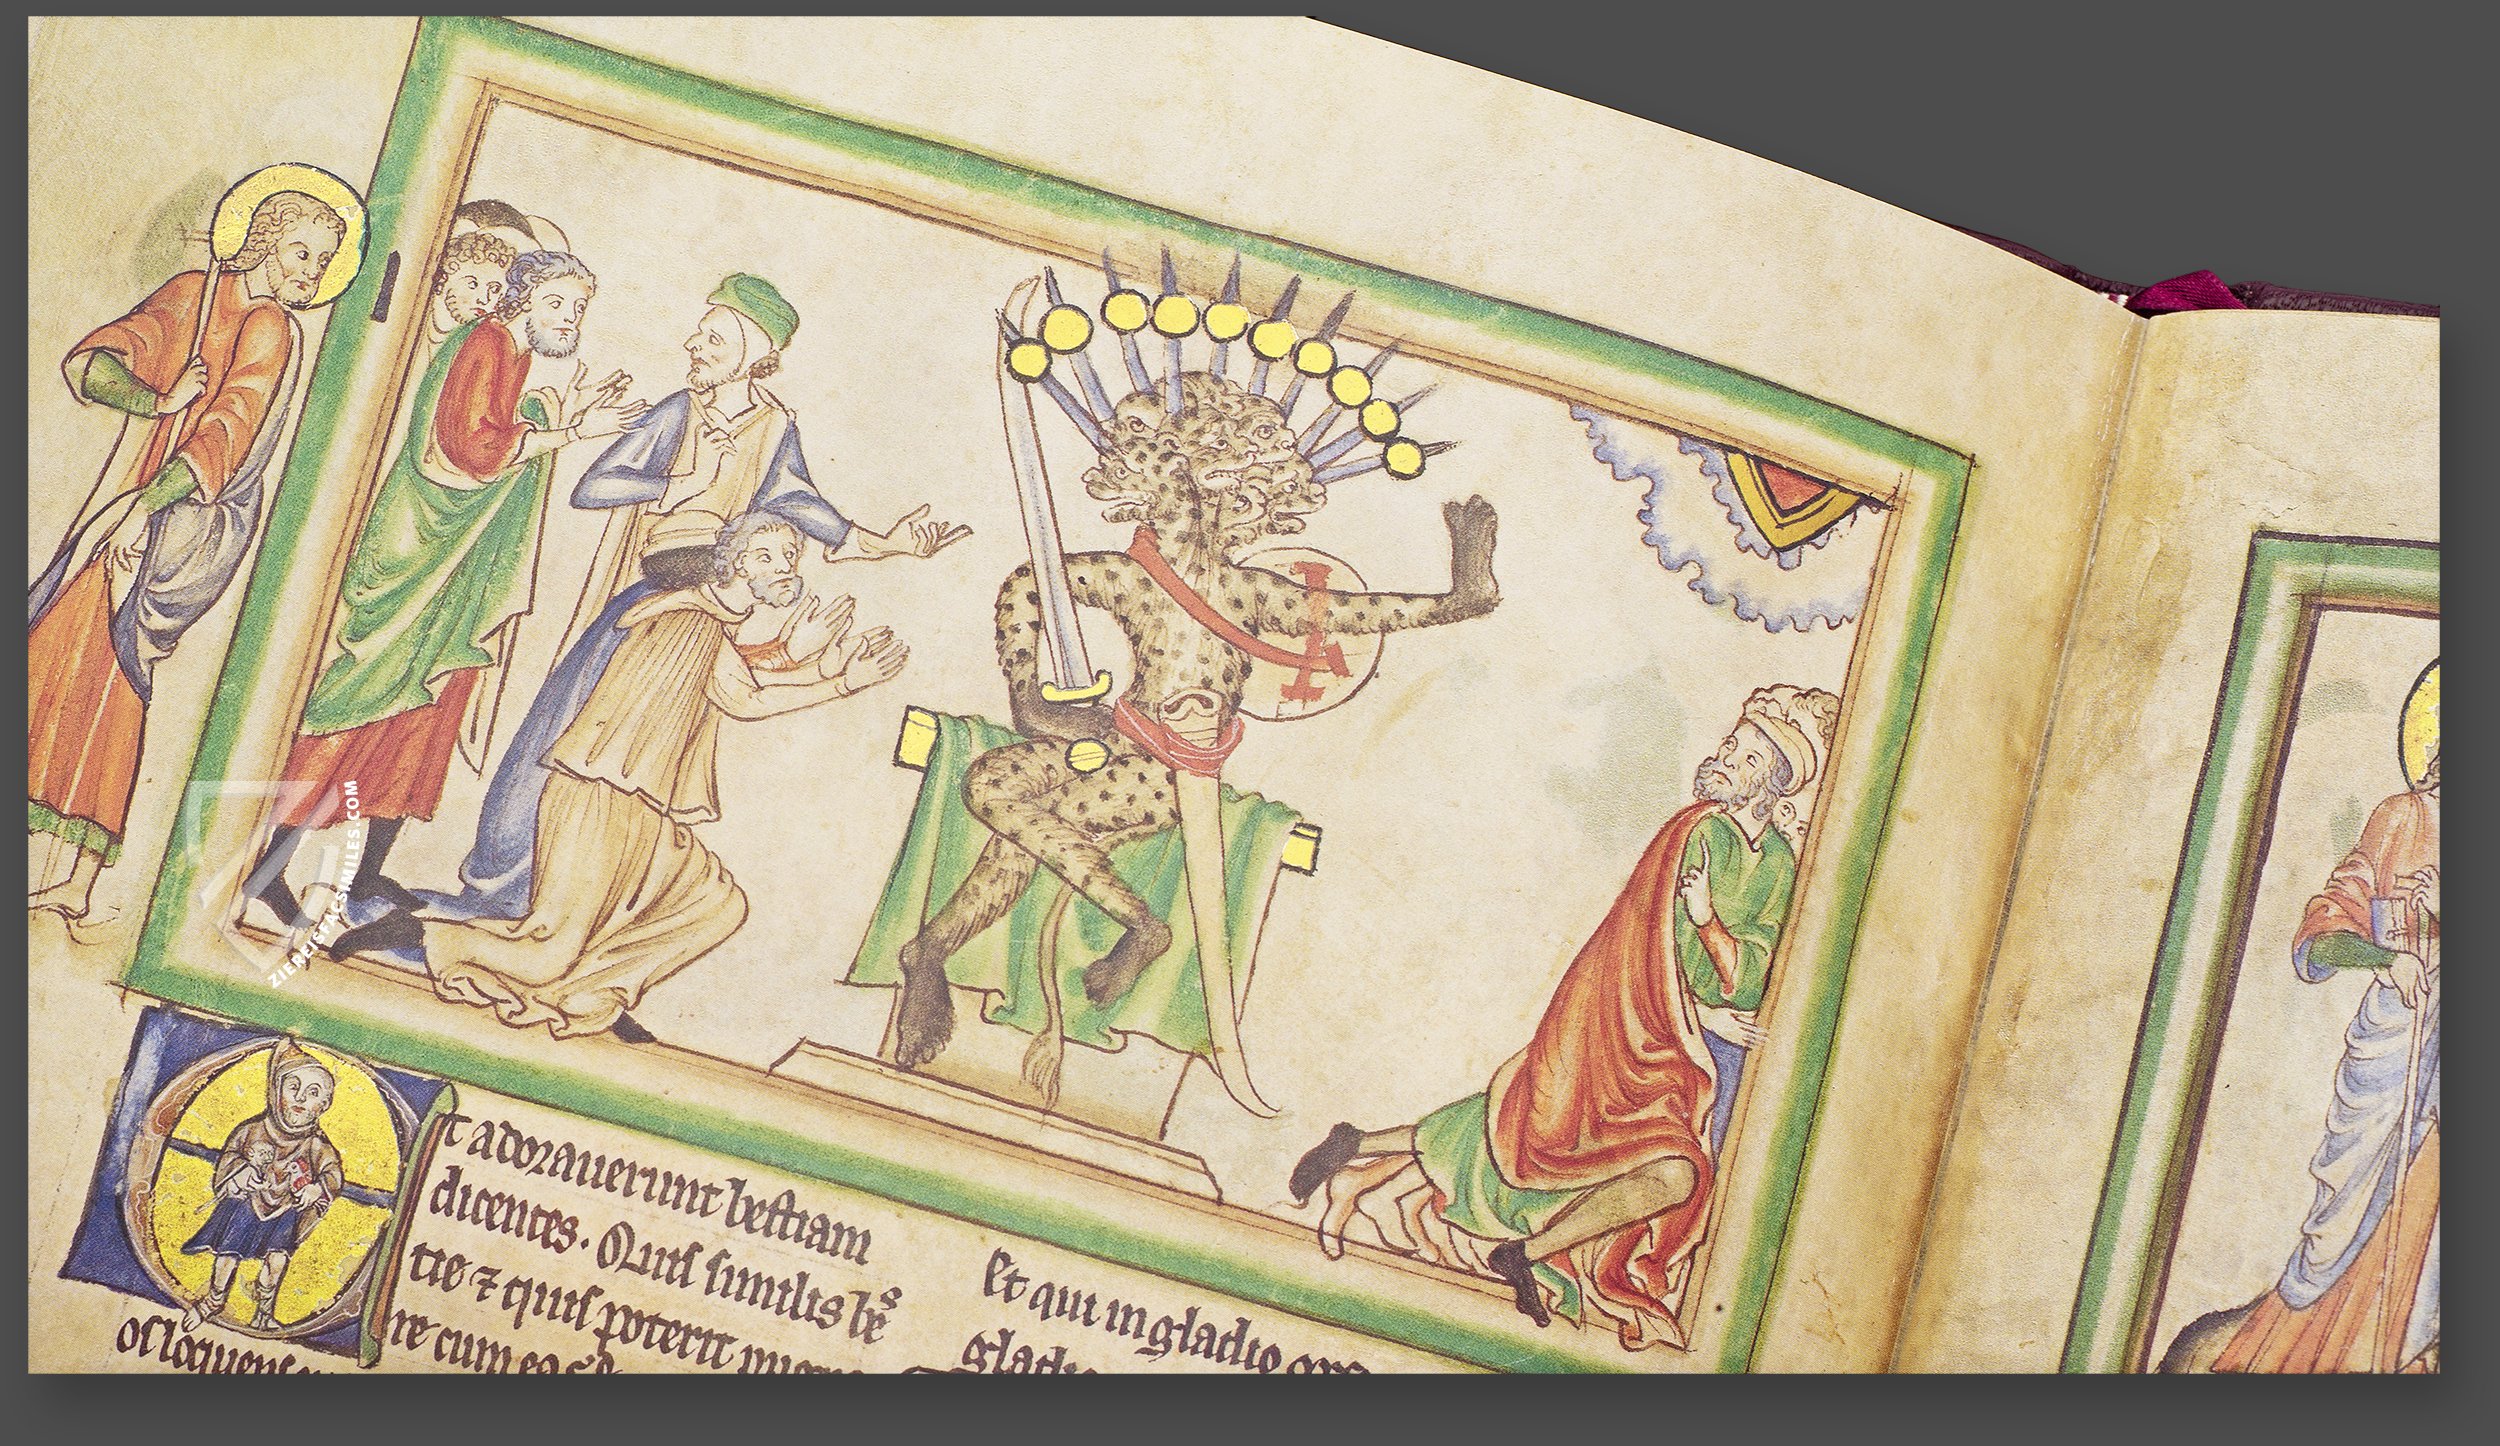 ZIEREISFACSIMILES.COM
t adorauerunt bestiam
dicentes. Quis similis bes
tie ⁊ quis poterit
re cum ea
os loquens
Et qui in gladio
gladio